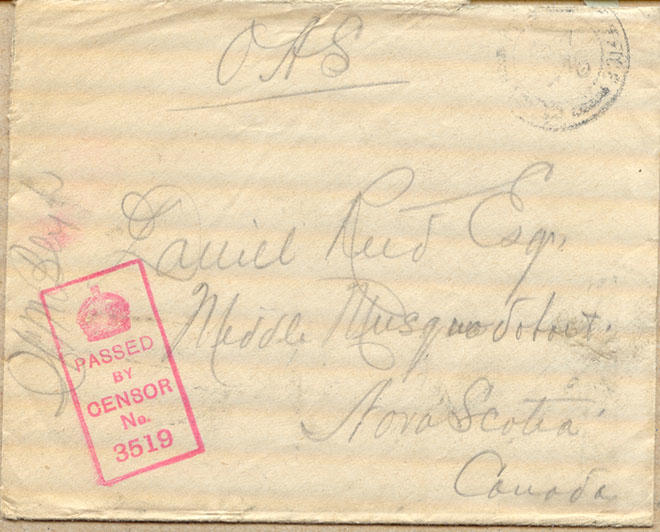 OAS
Daniel Reid Esq.
Middle Musquodoboit.
Nova Scotia
Canada
PASSED
BY
CENSOR
No.
3519